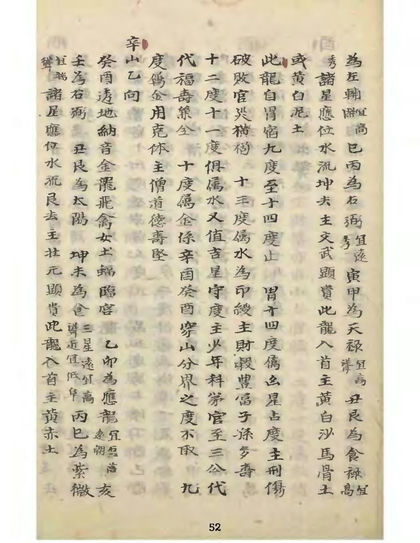 為左輔宜高 巳丙為右弼宜遠秀 寅甲為天祿宜高聳 丑艮為食祿宜高
秀 諸星應位水流坤去主文武顯貴此龍入首主黃白沙馬骨土
或黃白泥土
此龍自胃宿九度至十四度止 胃十四度係凶星占度主刑傷
破敗官災 十三度屬水為印綬主財穀豐富子孫多壽
十二度十一度俱屬水又值吉星守度主少年科第官至三公代
代福壽綿公 十度屬金係辛酉癸酉穿山分界之度不取 九
度屬金用克体主僧道德壽堅
辛山乙向
癸酉透地納音金羅飛禽女土蝠臨宮 乙卯為應龍宜 亥
壬為右弼 丑艮為太陽 坤未為 三星遠宜高 丙巳為紫微
宜高聳 諸星應位水流艮去主壯元顯貴此龍入首主黃赤土
52